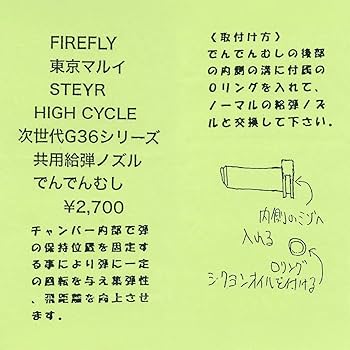 FIREFLY
東京マルイ
STEYR
HIGH CYCLE
次世代G36シリーズ
共用給弾ノズル
でんでんむし
¥2,700
チャンバー内部で弾
の保持位置を固定す
る事により弾に一定
の回転を与え集弾性
、飛距離を向上させ
ます。
（取付け方）
でんでんむしの後部
の内側の溝に付属の
Oリングを入れて、
ノーマルの給弾ノズ
ルと交換して下さい。
内側のミゾへ
入れる
Oリング
シリコンオイルを付ける